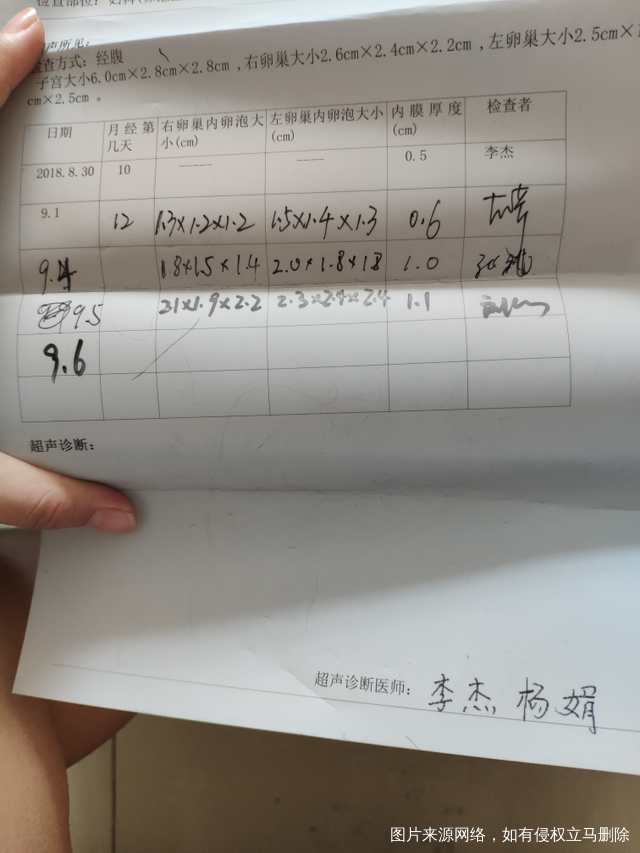 检查方式：经腹
子宫大小6.0cm×2.8cm×2.8cm，右卵巢大小2.6cm×2.4cm×2.2cm，左卵巢大小2.5cm×
cm×2.5cm。
日期 月经第几天 右卵巢内卵泡大小(cm) 左卵巢内卵泡大小(cm) 内膜厚度(cm) 检查者
2018.8.30 10 —— —— 0.5 李杰
9.1 12 1.3×1.2×1.2 1.5×1.4×1.3 0.6
9.4 1.8×1.5×1.4 2.0×1.8×1.8 1.0
9.5 2.1×1.9×2.2 2.3×2.4×2.4 1.1
9.6
超声诊断：
超声诊断医师：李杰 杨娟
图片来源网络，如有侵权立马删除